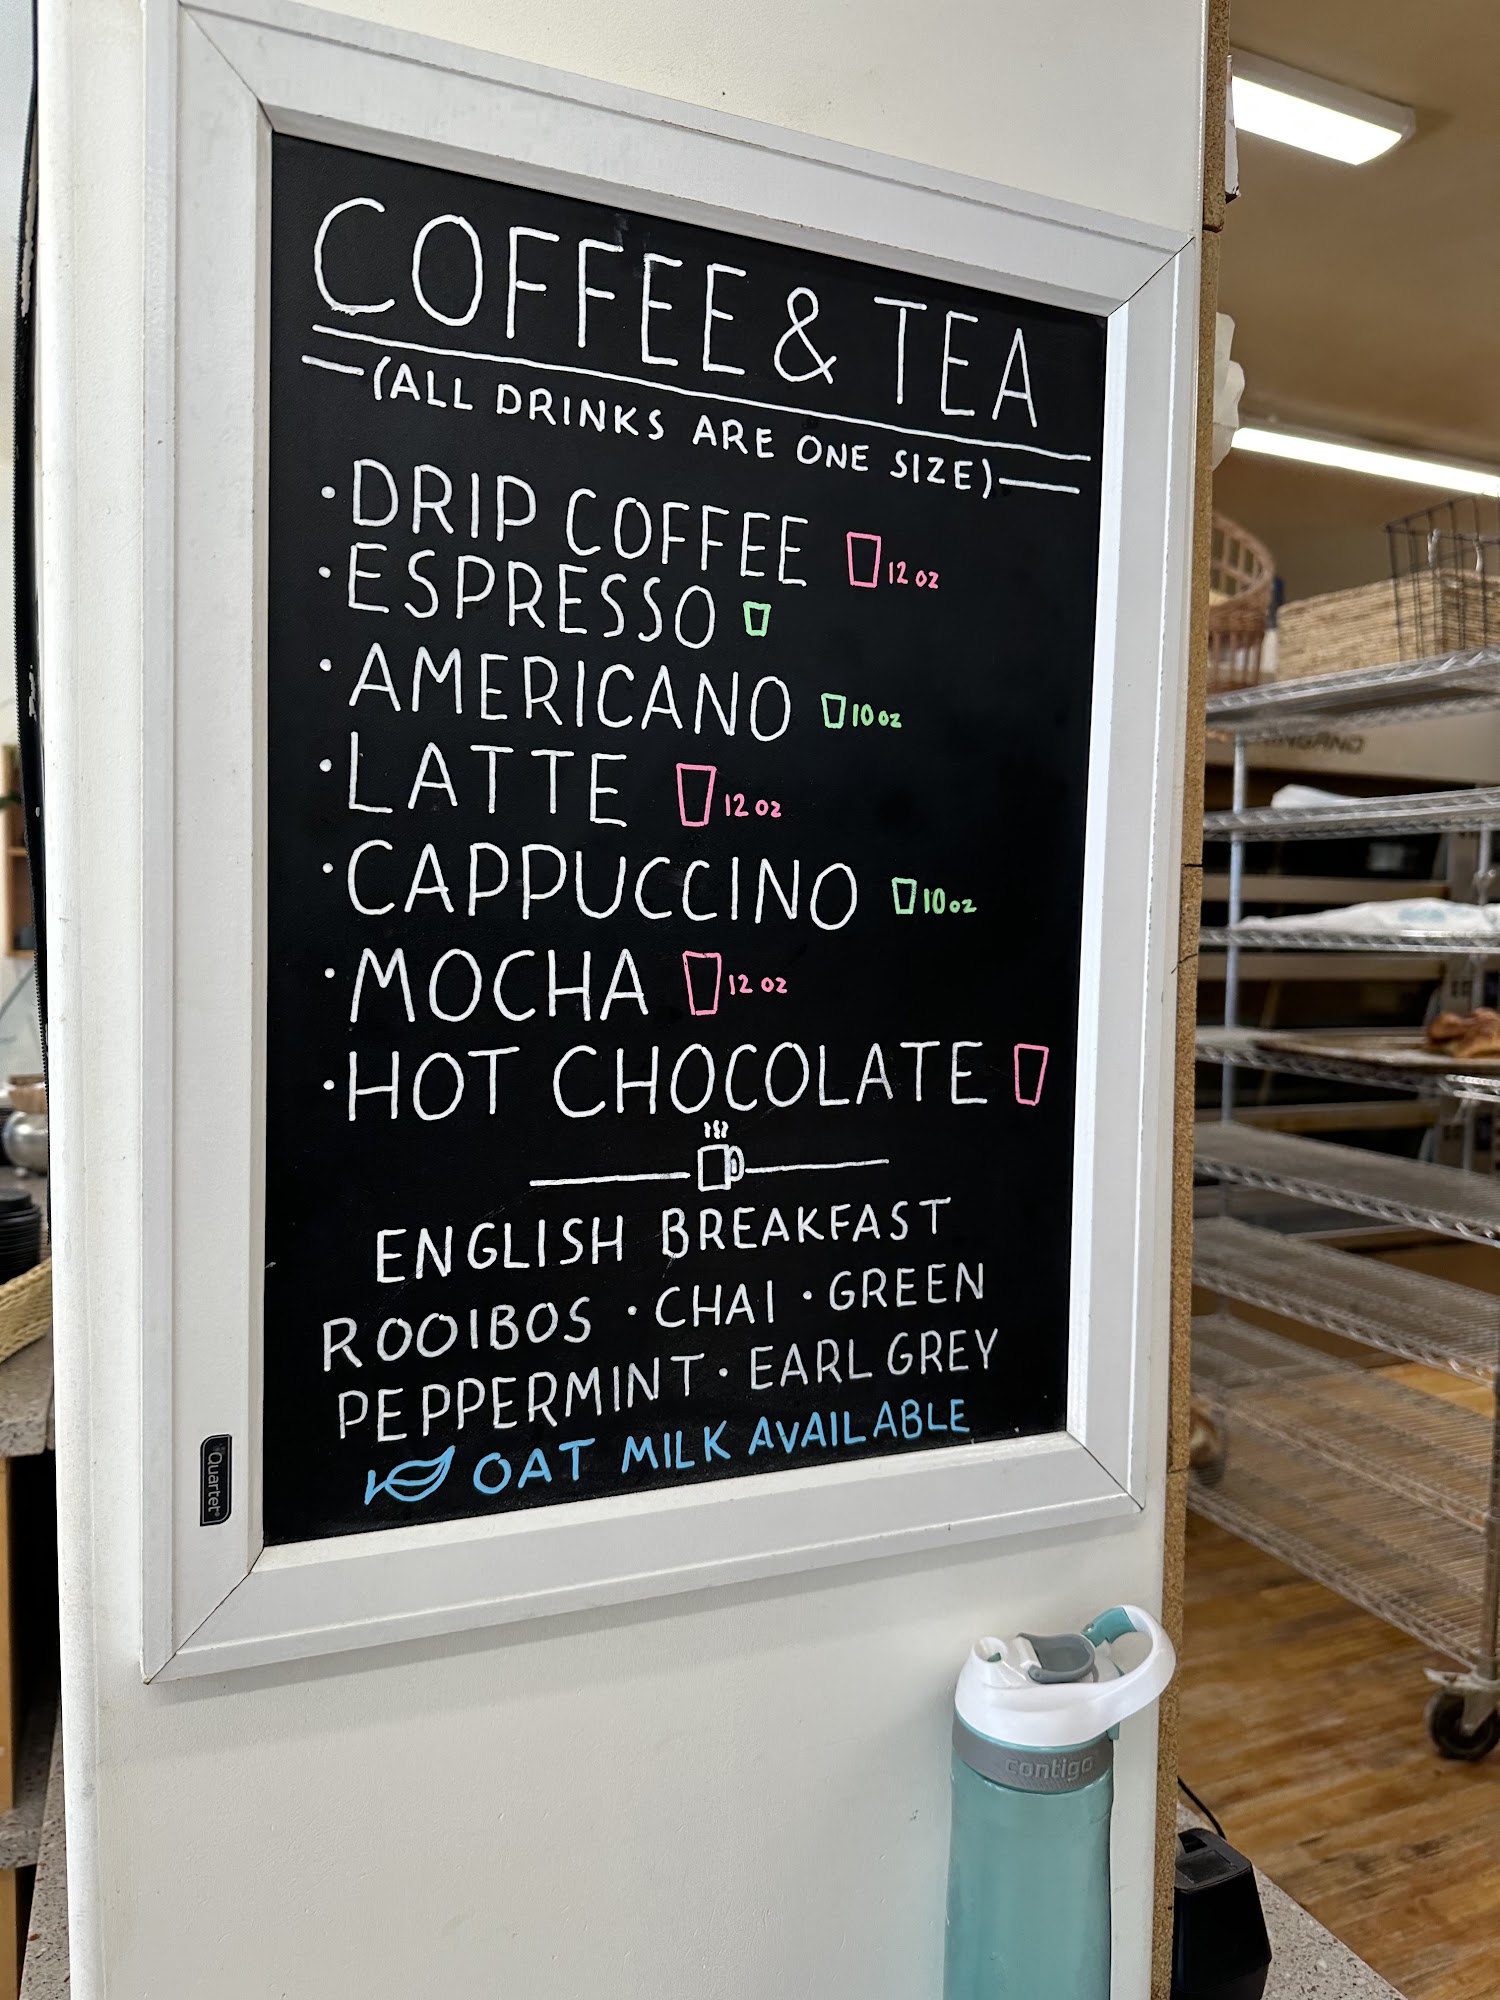 COFFEE & TEA
(ALL DRINKS ARE ONE SIZE)
·DRIP COFFEE 12 oz
·ESPRESSO
·AMERICANO 10 oz
·LATTE 12 oz
·CAPPUCCINO 10 oz
·MOCHA 12 oz
·HOT CHOCOLATE
ENGLISH BREAKFAST
ROOIBOS · CHAI · GREEN
PEPPERMINT · EARL GREY
OAT MILK AVAILABLE
Quartet
contigo